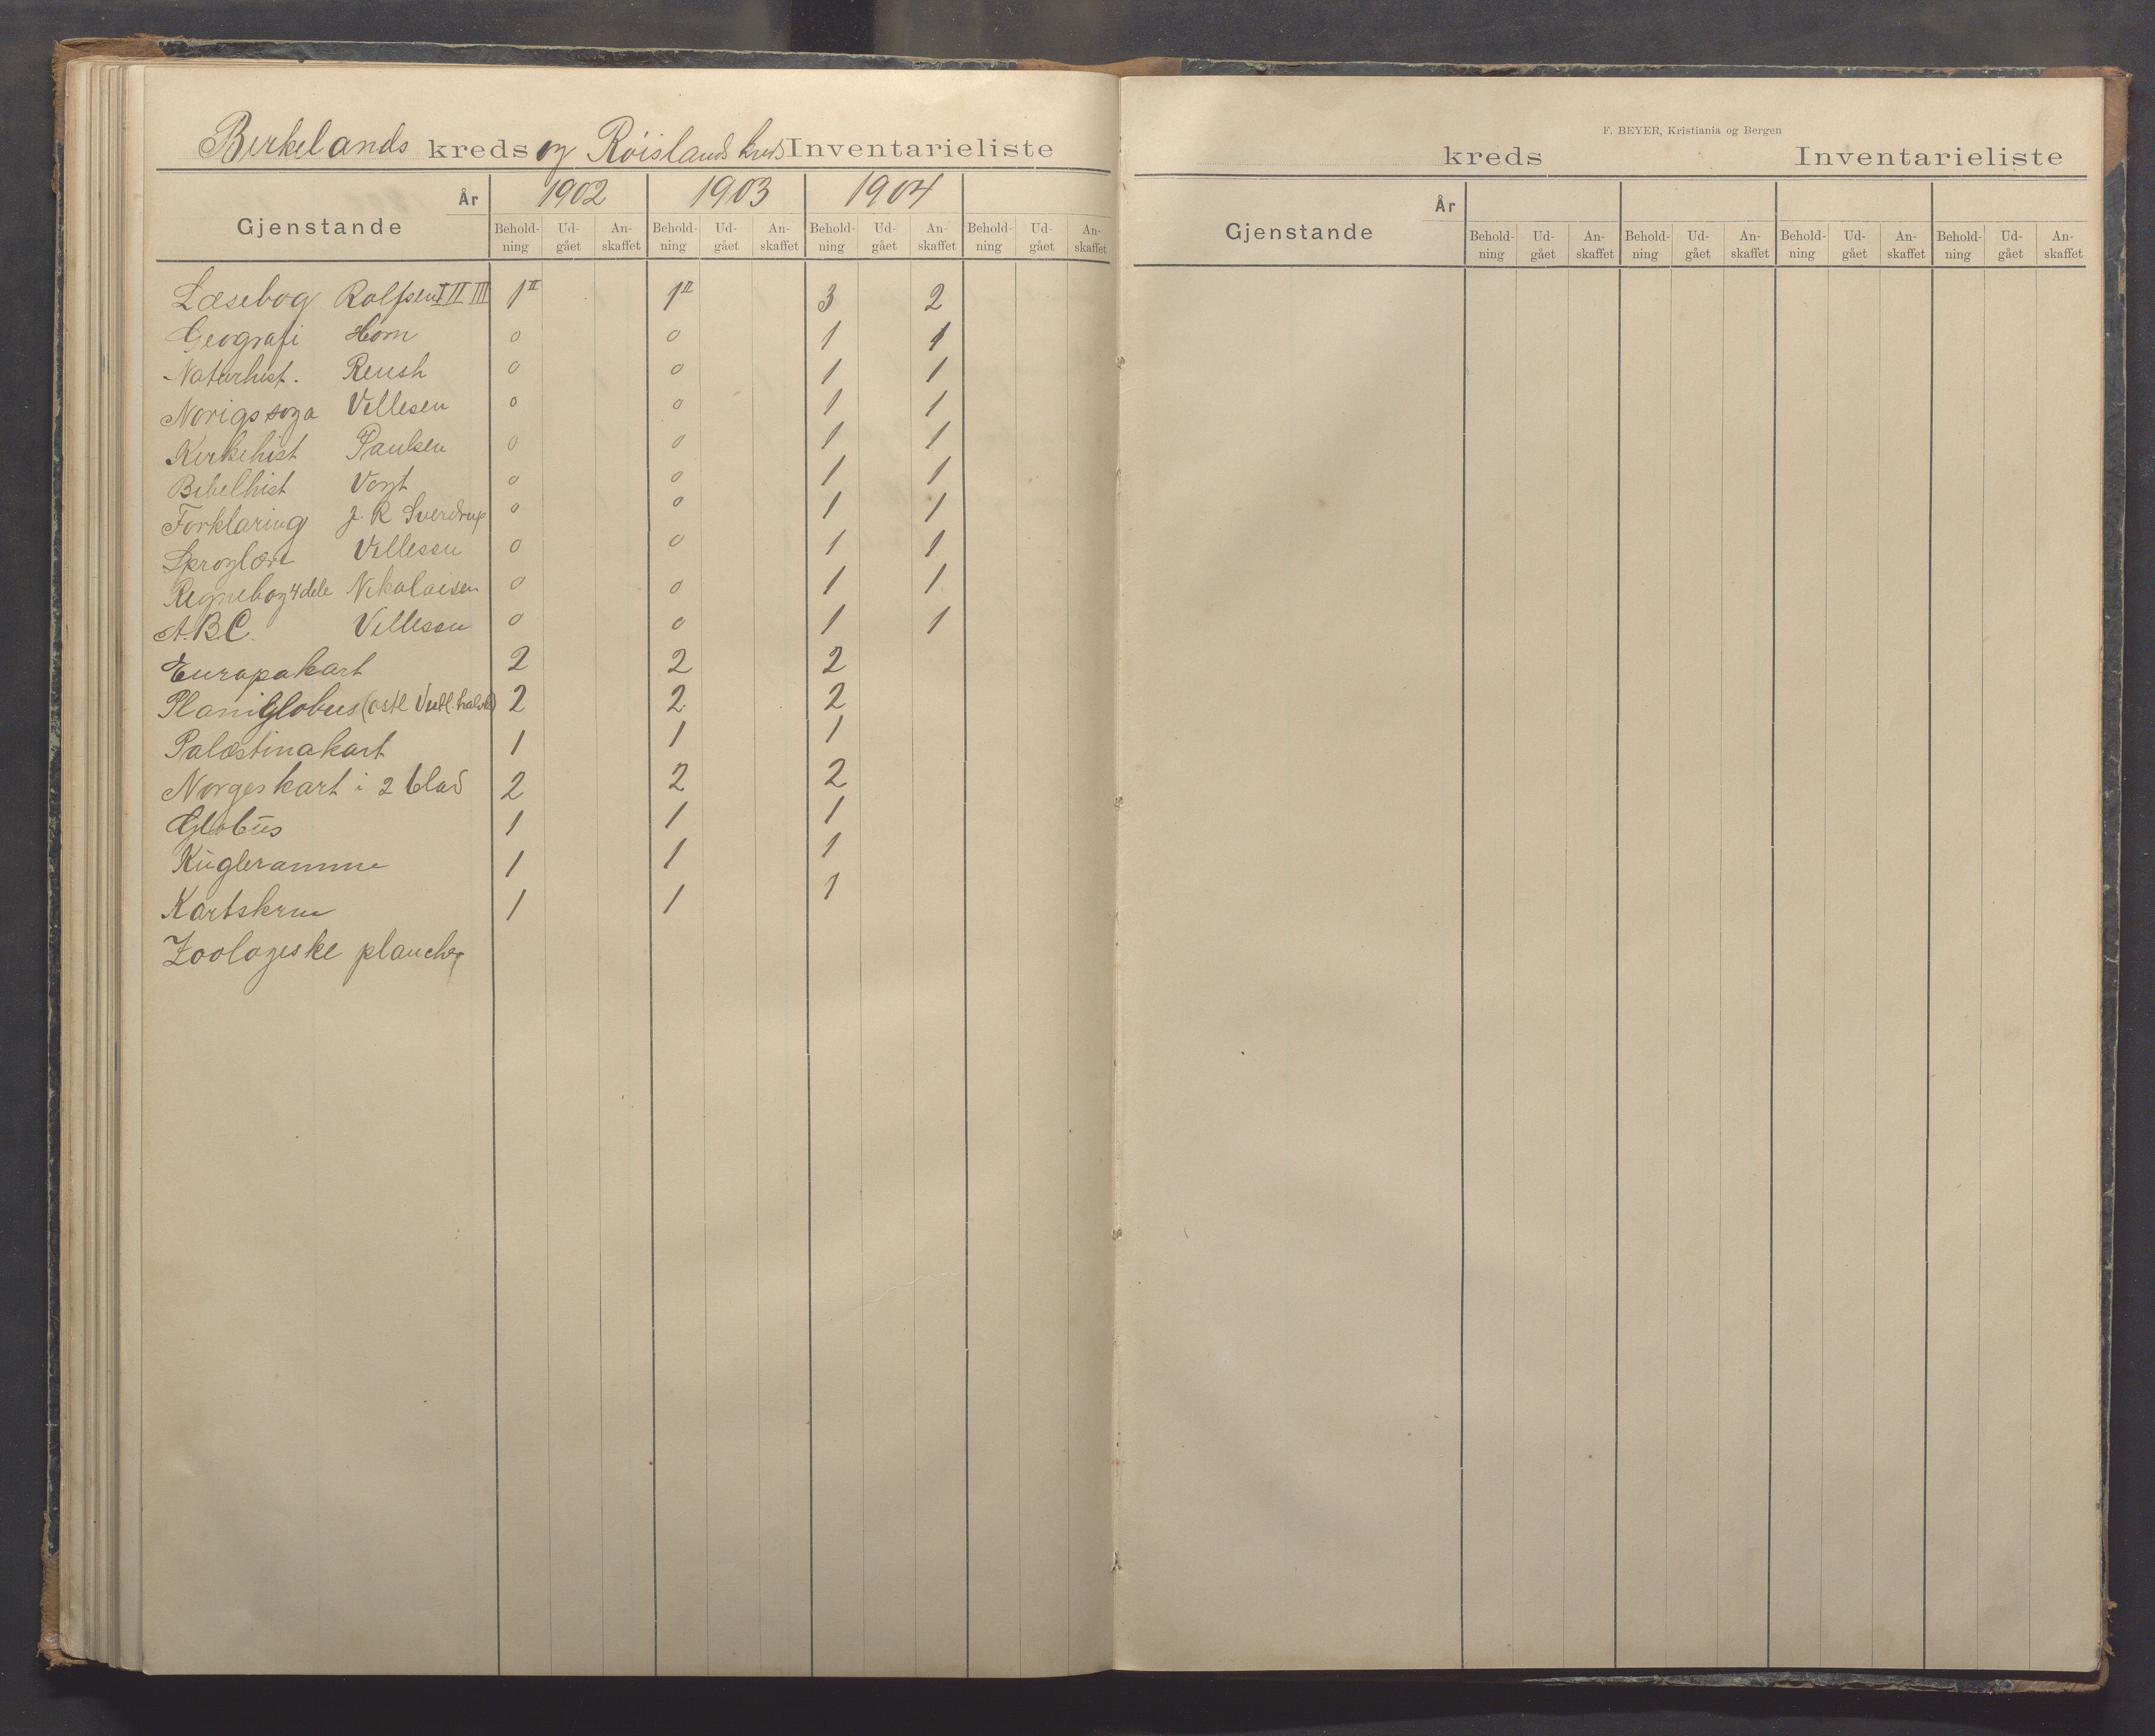 Birkelands kreds og Röislands kreds Inventarieliste
År 1902 1903 1904
Gjenstande Behold-ning Ud-gået An-skaffet Behold-ning Ud-gået An-skaffet Behold-ning Ud-gået An-skaffet Behold-ning Ud-gået An-skaffet
Læsebog Rolfsen I II III 1II 1II 3 2
Geografi Horn 0 0 1 1
Naturhist. Reush 0 0 1 1
Norigs soga Villesen 0 0 1 1
Kirkehist Paulsen 0 0 1 1
Bibelhist Vogt 0 0 1 1
Forklaring J. R Sverdrup 0 0 1 1
Sproglære Villesen 0 0 1 1
Regnebog 4 dele Nikolaisen 0 0 1 1
A.B.C. Villesen 0 0 1 1
Europakart 2 2 2
Planiglobus (østl Vestl. halvk) 2 2 2
Palæstinakart 1 1 1
Norgeskart i 2 blad 2 2 2
Globus 1 1 1
Kugleramme 1 1 1
1 1 1
Zoologiske plancher
F. BEYER, Kristiania og Bergen
kreds Inventarieliste
År
Gjenstande Behold-ning Ud-gået An-skaffet Behold-ning Ud-gået An-skaffet Behold-ning Ud-gået An-skaffet Behold-ning Ud-gået An-skaffet